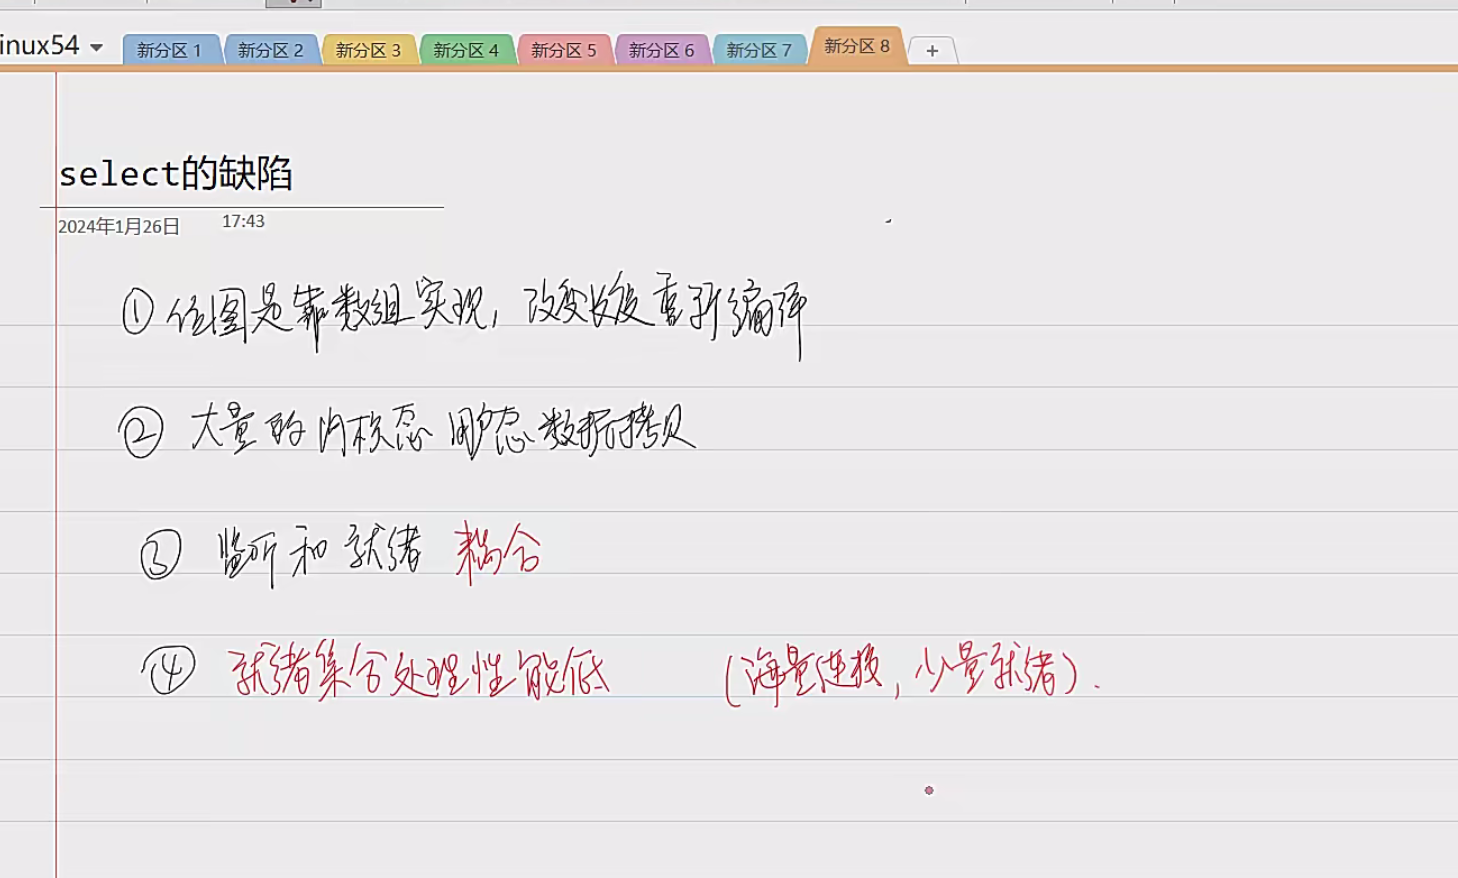 inux54 新分区 1 新分区 2 新分区 3 新分区 4 新分区 5 新分区 6 新分区 7 新分区 8 +
select的缺陷
2024年1月26日 17:43
① 位图是靠数组实现, 改变长度重新编译
② 大量的内核态 用户态数据拷贝
③ 监听和就绪 耦合
④ 就绪集合处理性能低 (海量连接, 少量就绪).